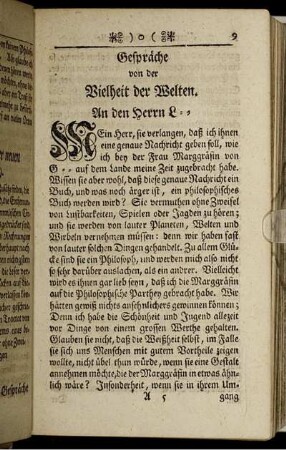 ❊ ) o ( ❊ 9
Gespräche
von der
Vielheit der Welten.
An den Herrn L - -
MEin Herr, sie verlangen, daß ich ihnen
eine genaue Nachricht geben soll, wie
ich bey der Frau Marggräfin von
G - - auf dem Lande meine Zeit zugebracht habe.
Wissen sie aber wohl, daß diese genaue Nachricht ein
Buch, und was noch ärger ist, ein philosophisches
Buch werden wird? Sie vermuthen ohne Zweifel
von Lustbarkeiten, Spielen oder Jagden zu hören;
und sie werden von lauter Planeten, Welten und
Wirbeln vernehmen müssen: denn wir haben fast
von lauter solchen Dingen gehandelt. Zu allem Glü-
cke sind sie ein Philosoph, und werden mich also nicht
so sehr darüber auslachen, als ein andrer. Vielleicht
wird es ihnen gar lieb seyn, daß ich die Marggräfin
auf die Philosophische Parthey gebracht habe. Wir
hätten gewiß nichts ansehnlichers gewinnen können;
Denn ich habe die Schönheit und Jugend allezeit
vor Dinge von einem grossen Werthe gehalten.
Glauben sie nicht, daß die Weißheit selbst, im Falle
sie sich uns Menschen mit gutem Vortheile zeigen
wollte, nicht übel thun würde, wenn sie eine Gestalt
annehmen möchte, die der Marggräfin in etwas ähn-
lich wäre? Insonderheit, wenn sie in ihrem Um-
A 5 gang